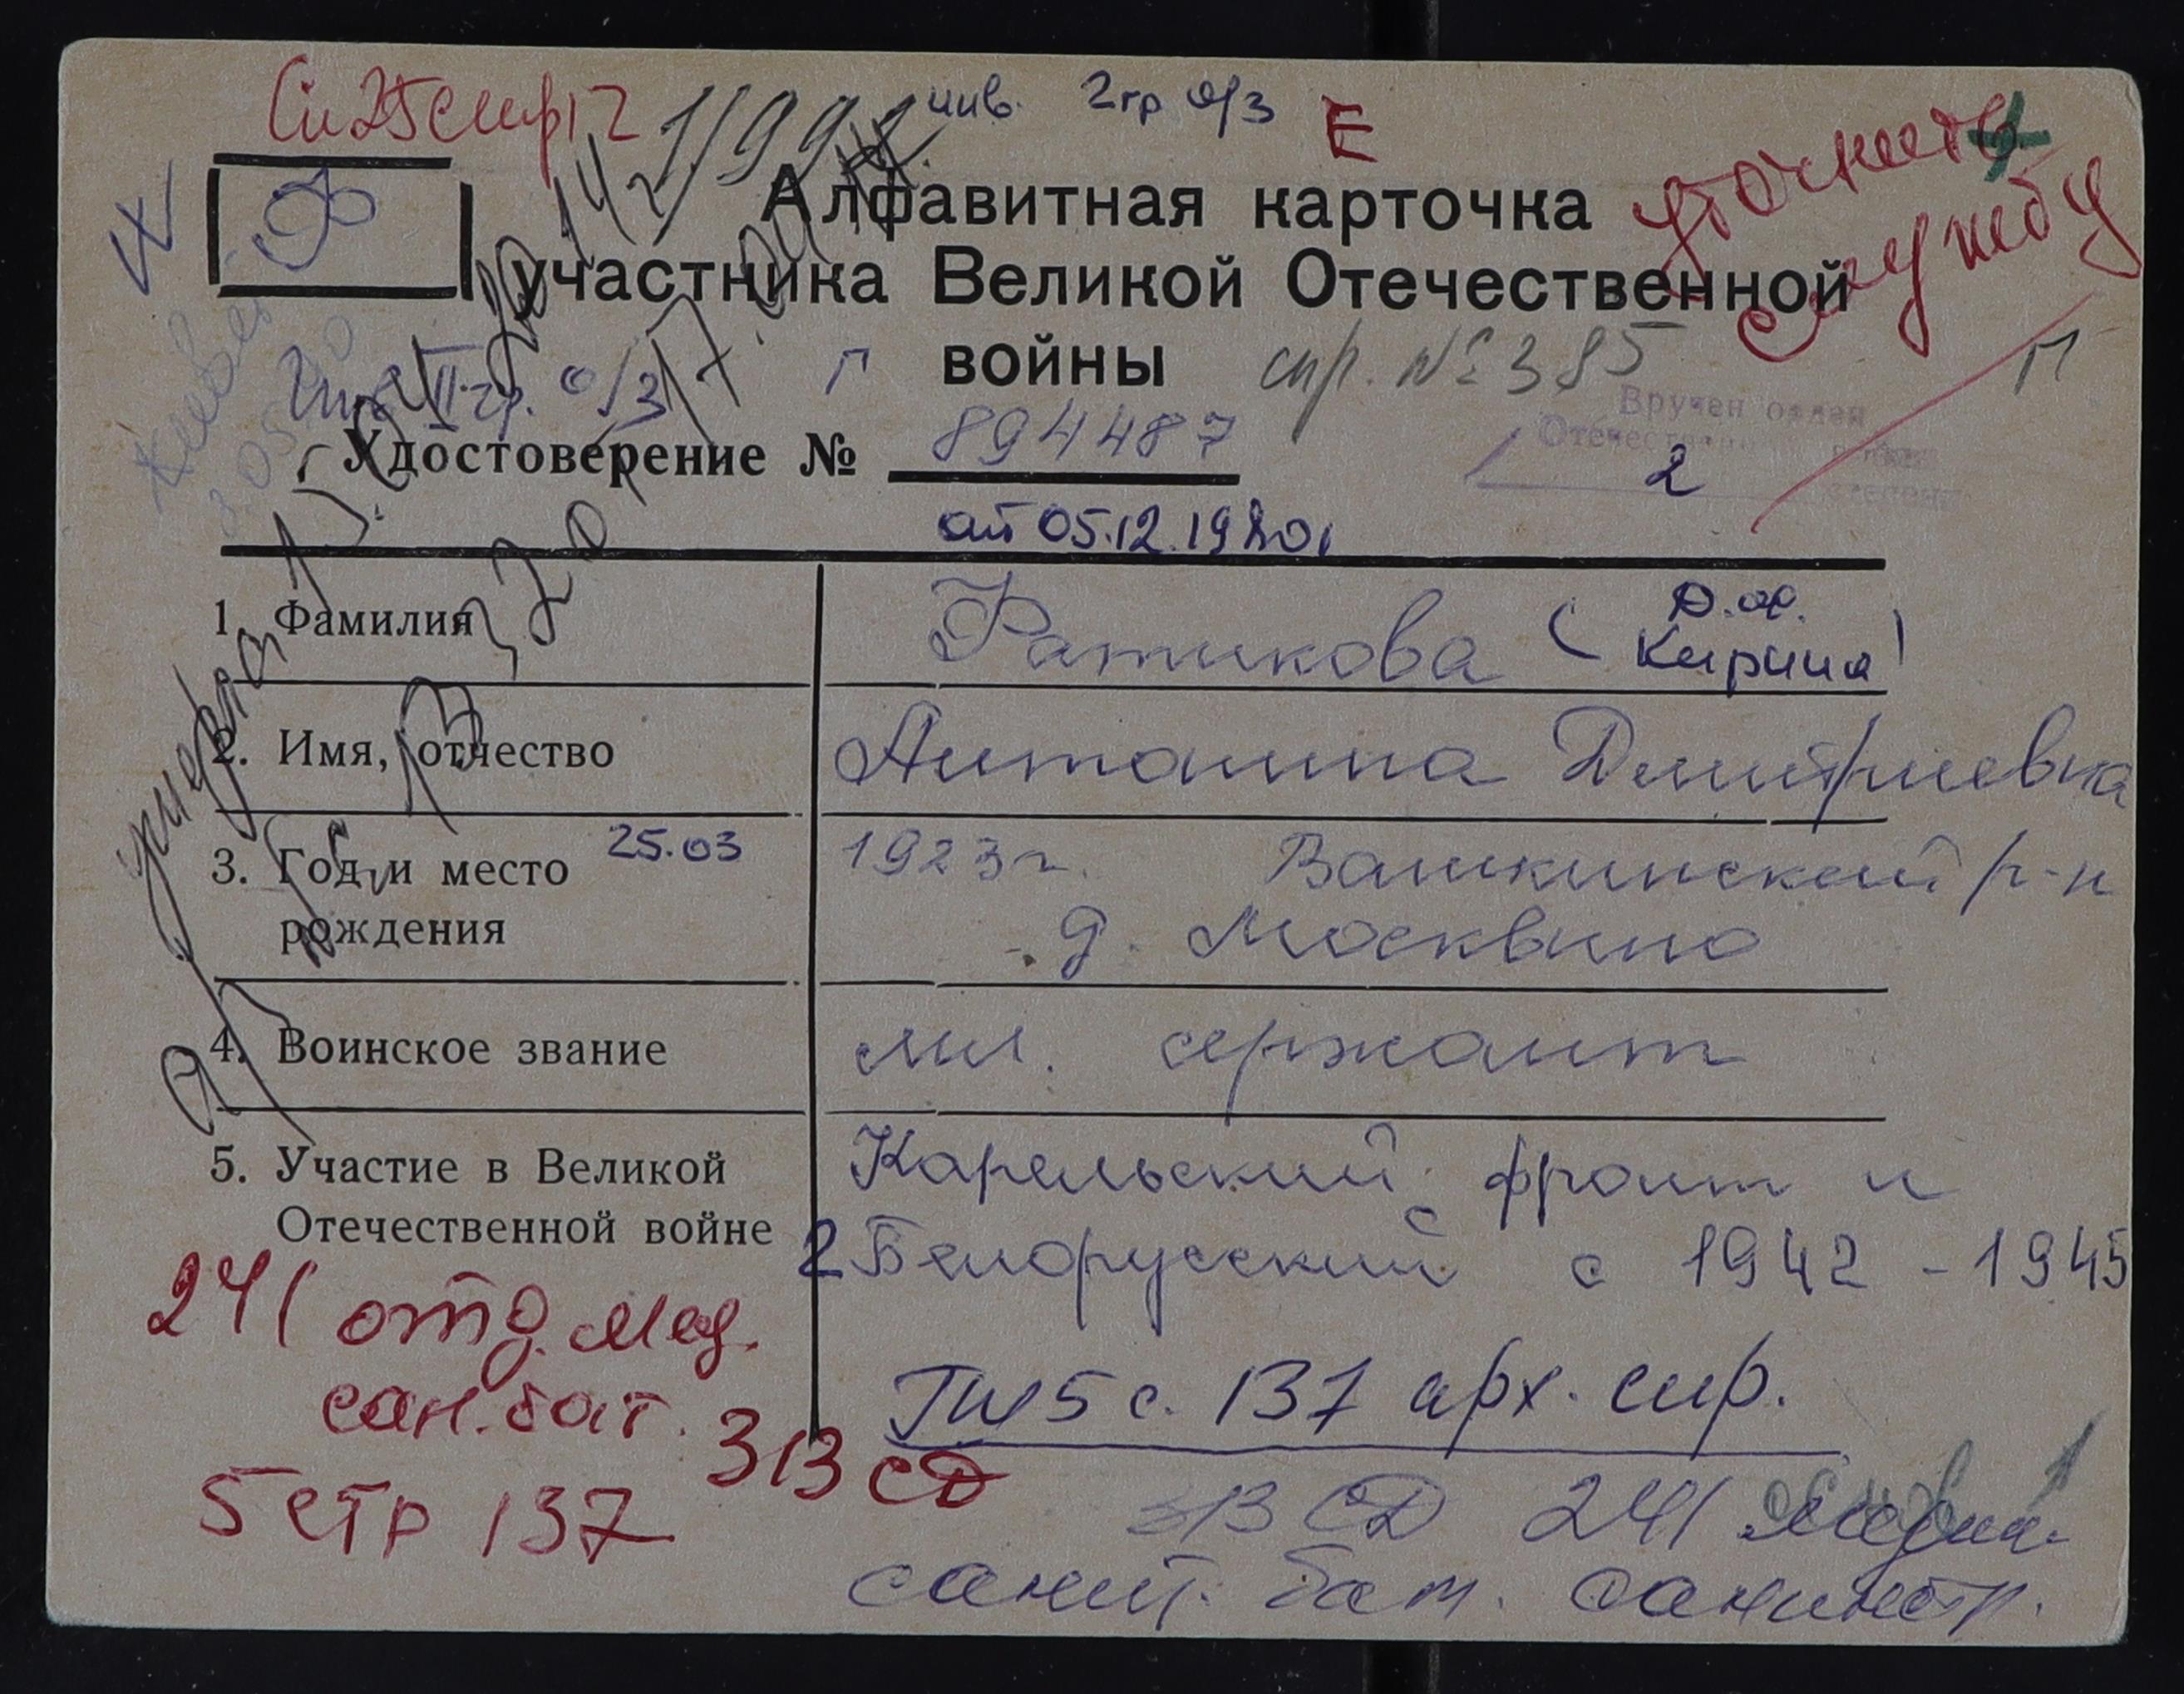 инв. 2гр о/з Е
Алфавитная карточка
участника Великой Отечественной
войны
уточнить
службу
спр. № 385
Г
П
инв. II гр. о/з
Вручен орден
Отечественной
2
степени
Удостоверение № 894487
от 05.12.1980г
1. Фамилия Фатикова (д.ф. Кирина)
2. Имя, отчество Антонина Дмитриевна
3. Год и место 25.03 1923г. Вашкинский р-н
рождения д. Москвино
4. Воинское звание мл. сержант
5. Участие в Великой Карельский фронт и
Отечественной войне 2 Белорусский с 1942 - 1945
241 отд. мед.
сан. бат. 313 СД
5 стр 137
Тш 5 с. 137 арх. спр.
313 СД 241
санит. бат. санинстр.
умерла